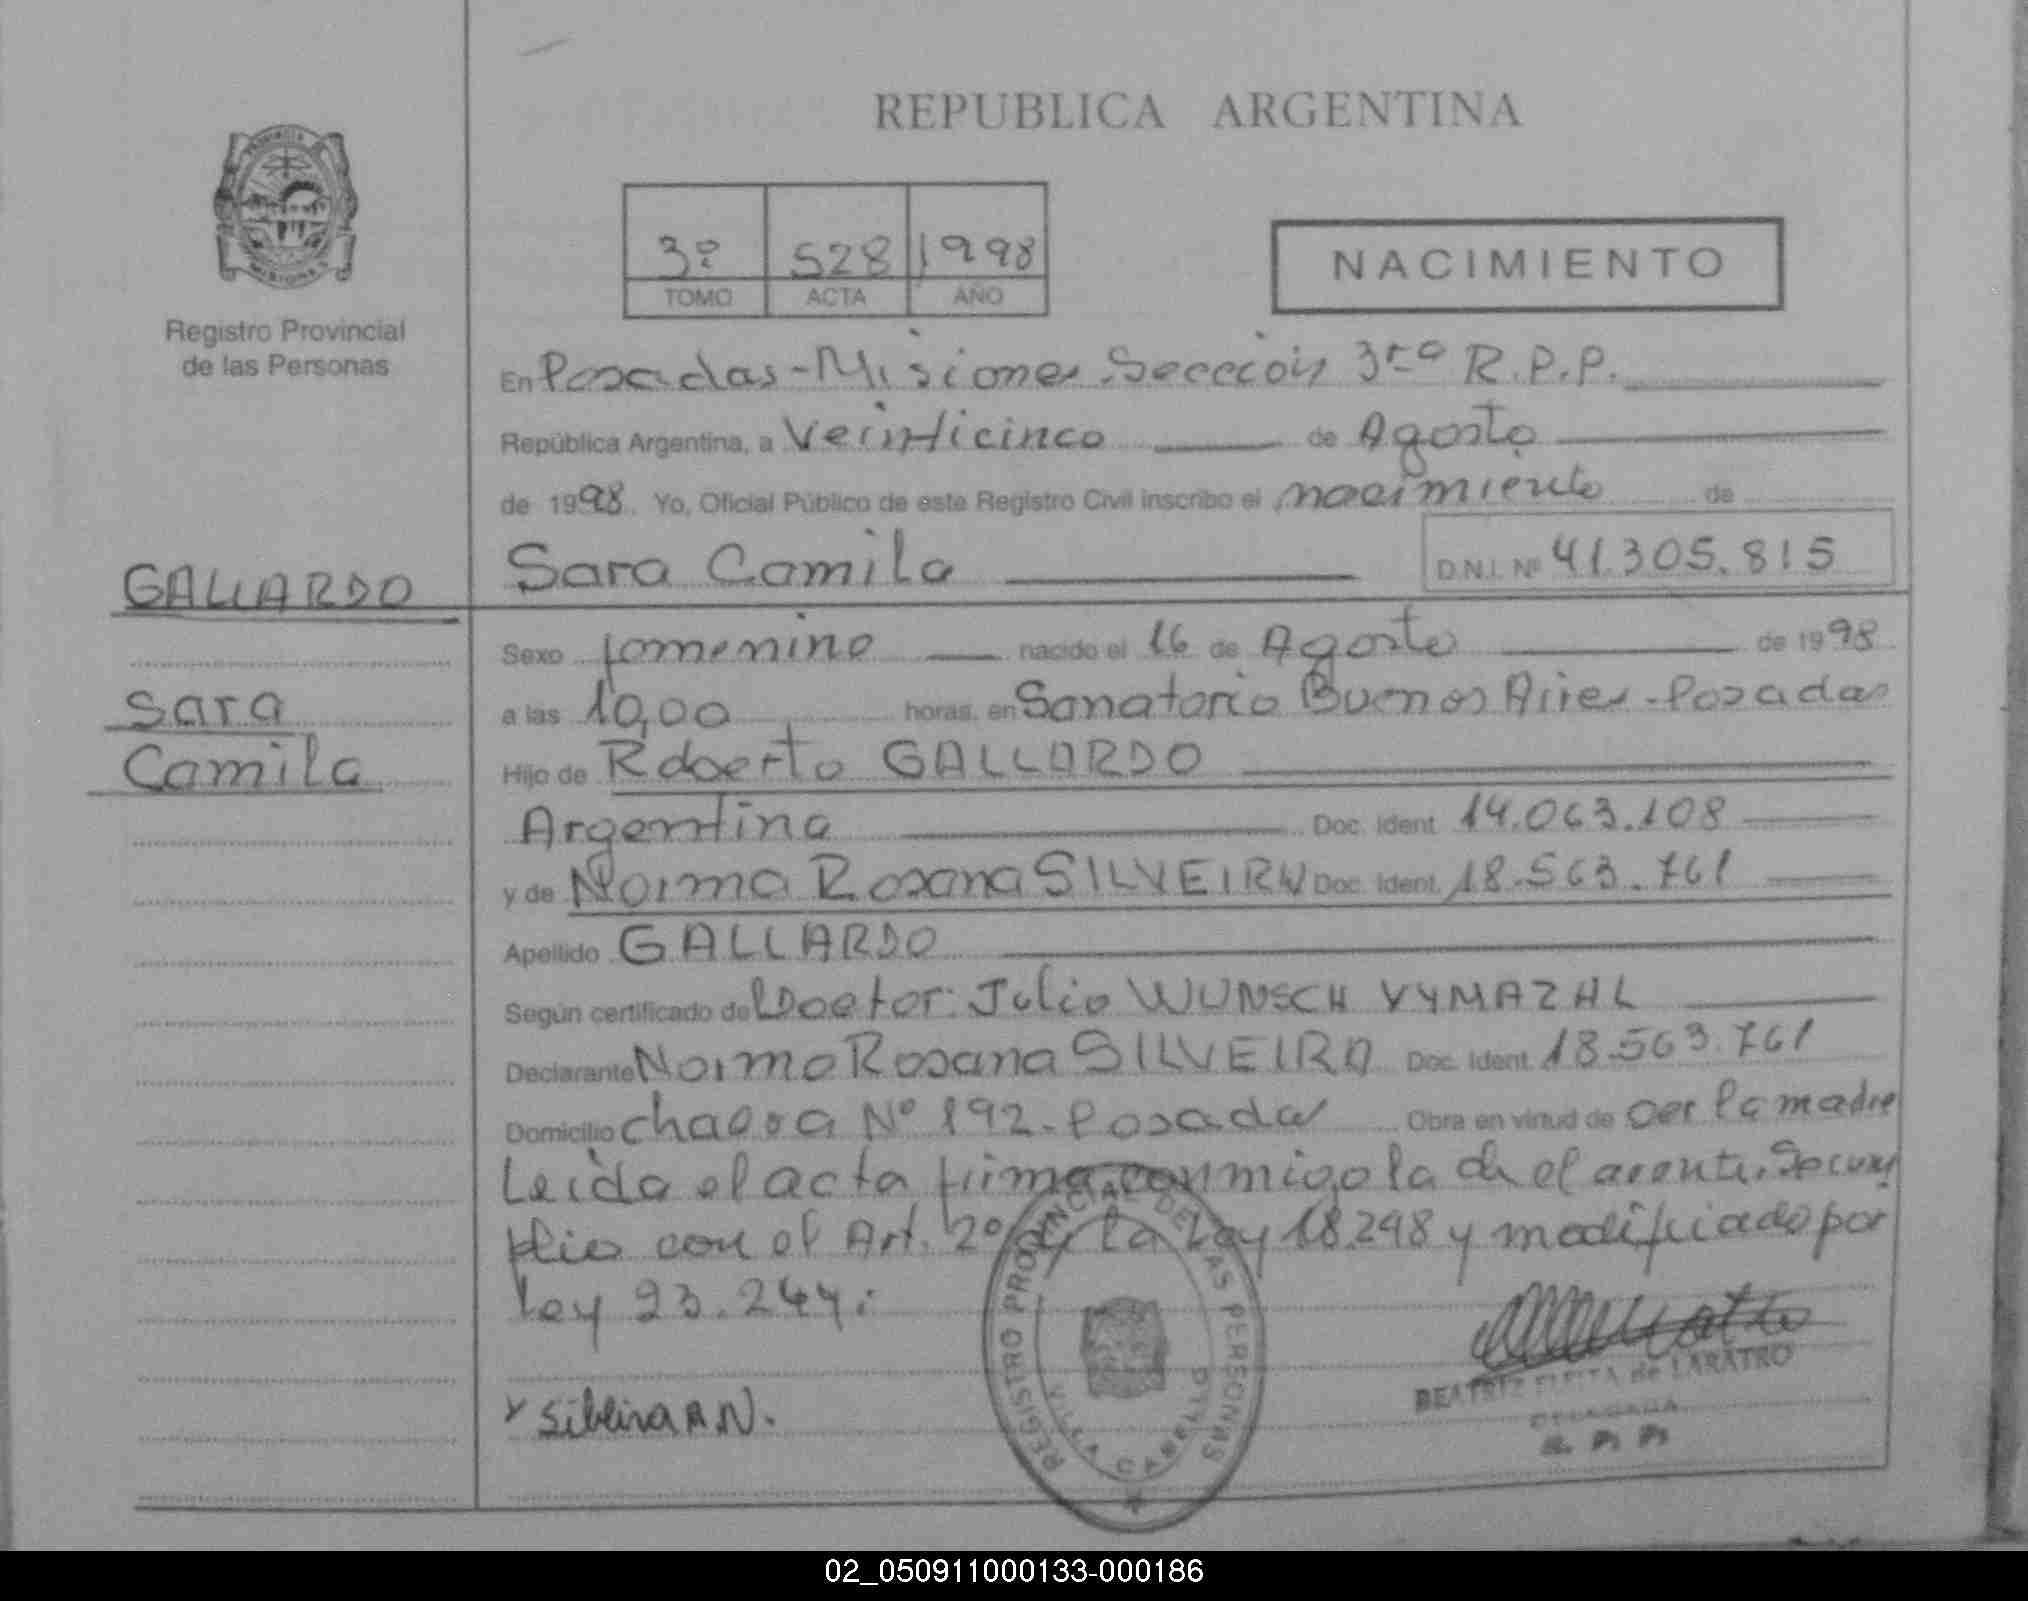 REPUBLICA ARGENTINA
3º 528 1998
TOMO ACTA AÑO
NACIMIENTO
Registro Provincial
de las Personas
En Posadas-Misiones Sección 3ra R.P.P.
República Argentina, a Veinticinco de Agosto
de 1998. Yo, Oficial Público de este Registro Civil inscribo el nacimiento de
Sara Camila D.N.I. Nº 41.305.815
GALLARDO
Sara
Camila
Sexo femenino nacido el 16 de Agosto de 1998
a las 10,00 horas. en Sanatorio Buenos Aires-Posadas
Hijo de Roberto GALLARDO
Argentina Doc. Ident. 14.063.108
y de Norma Rosana SILVEIRA Doc. Ident. 18.563.761
Apellido GALLARDO
Según certificado de Doctor: Julio WUNSCH VYMAZAL
Declarante Norma Rosana SILVEIRA Doc. Ident. 18.563.761
Domicilio chacra Nº 192-Posadas Obra en virtud de ser la madre
Leída el acta firma conmigo la Se cum
plió con el Art. 2º de la Ley 18.248 y modificado por
Ley 23.244:
REGISTRO PROVINCIAL DE LAS PERSONAS
VILLA CABELLO
BEATRIZ de LARATRO
DELEGADA
02_050911000133-000186